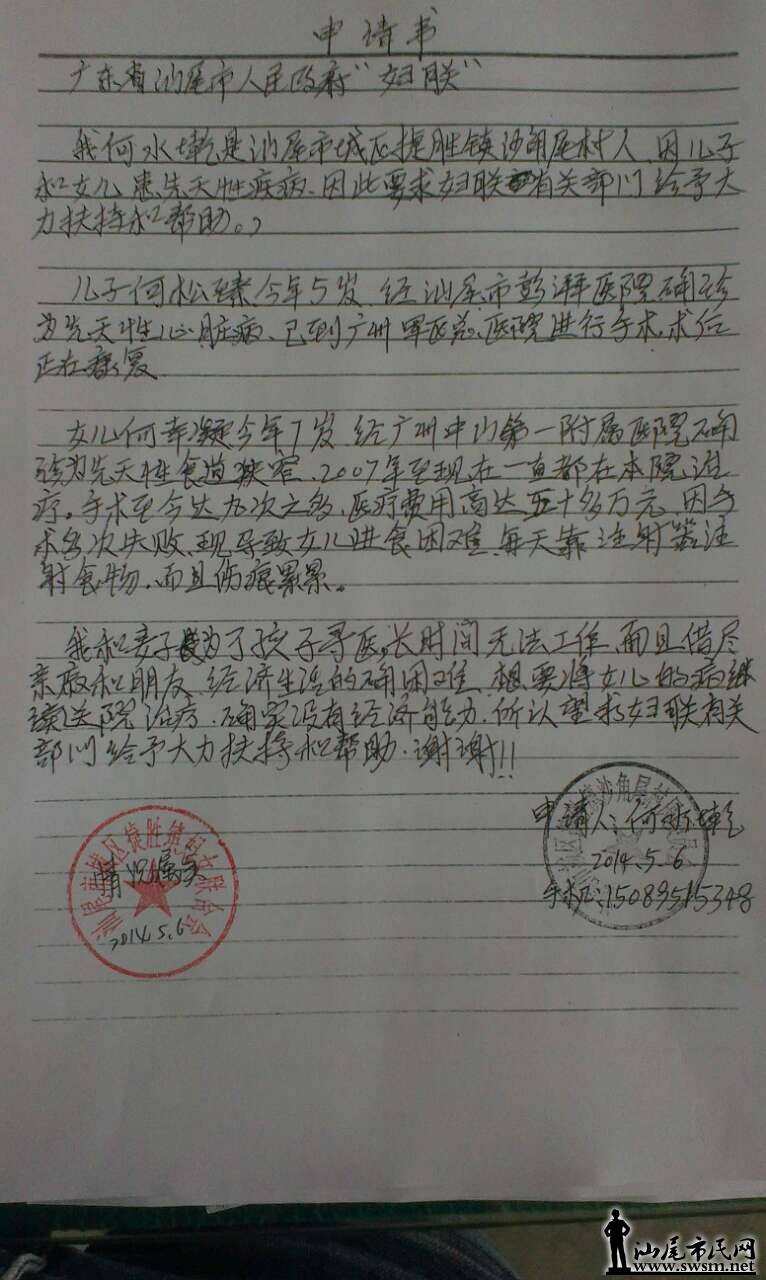 申请书
广东省汕尾市人民政府"妇联"
我何水乾是汕尾市城区捷胜镇沙角尾村人,因儿子
和女儿患先天性疾病、因此要求妇联有关部门给予大
力扶持和帮助。
儿子何松臻今年5岁,经汕尾市彭湃医院确诊
为先天性心脏病、已到广州军区总医院进行手术,术后
正在康复
女儿何幸凝今年7岁,经广州中山第一附属医院确
诊为先天性食道狭窄、2007年至现在一直都在本院治
疗。手术至今达九次之多,医疗费用高达五十多万元,因手
术多次失败,现导致女儿进食困难,每天靠注射器注
射食物,而且伤痕累累。
我和妻子为了孩子寻医,长时间无法工作,而且借尽
亲戚和朋友,经济生活的确困难,想要将女儿的病继
续送院治疗,确实没有经济能力,所以望求妇联有关
部门给予大力扶持和帮助.谢谢!!
申请人:何水乾
2014.5.6
手机:15089515348
汕尾市城区捷胜镇妇女联合会
情况属实
2014.5.6
汕尾市民网
www.swsm.net